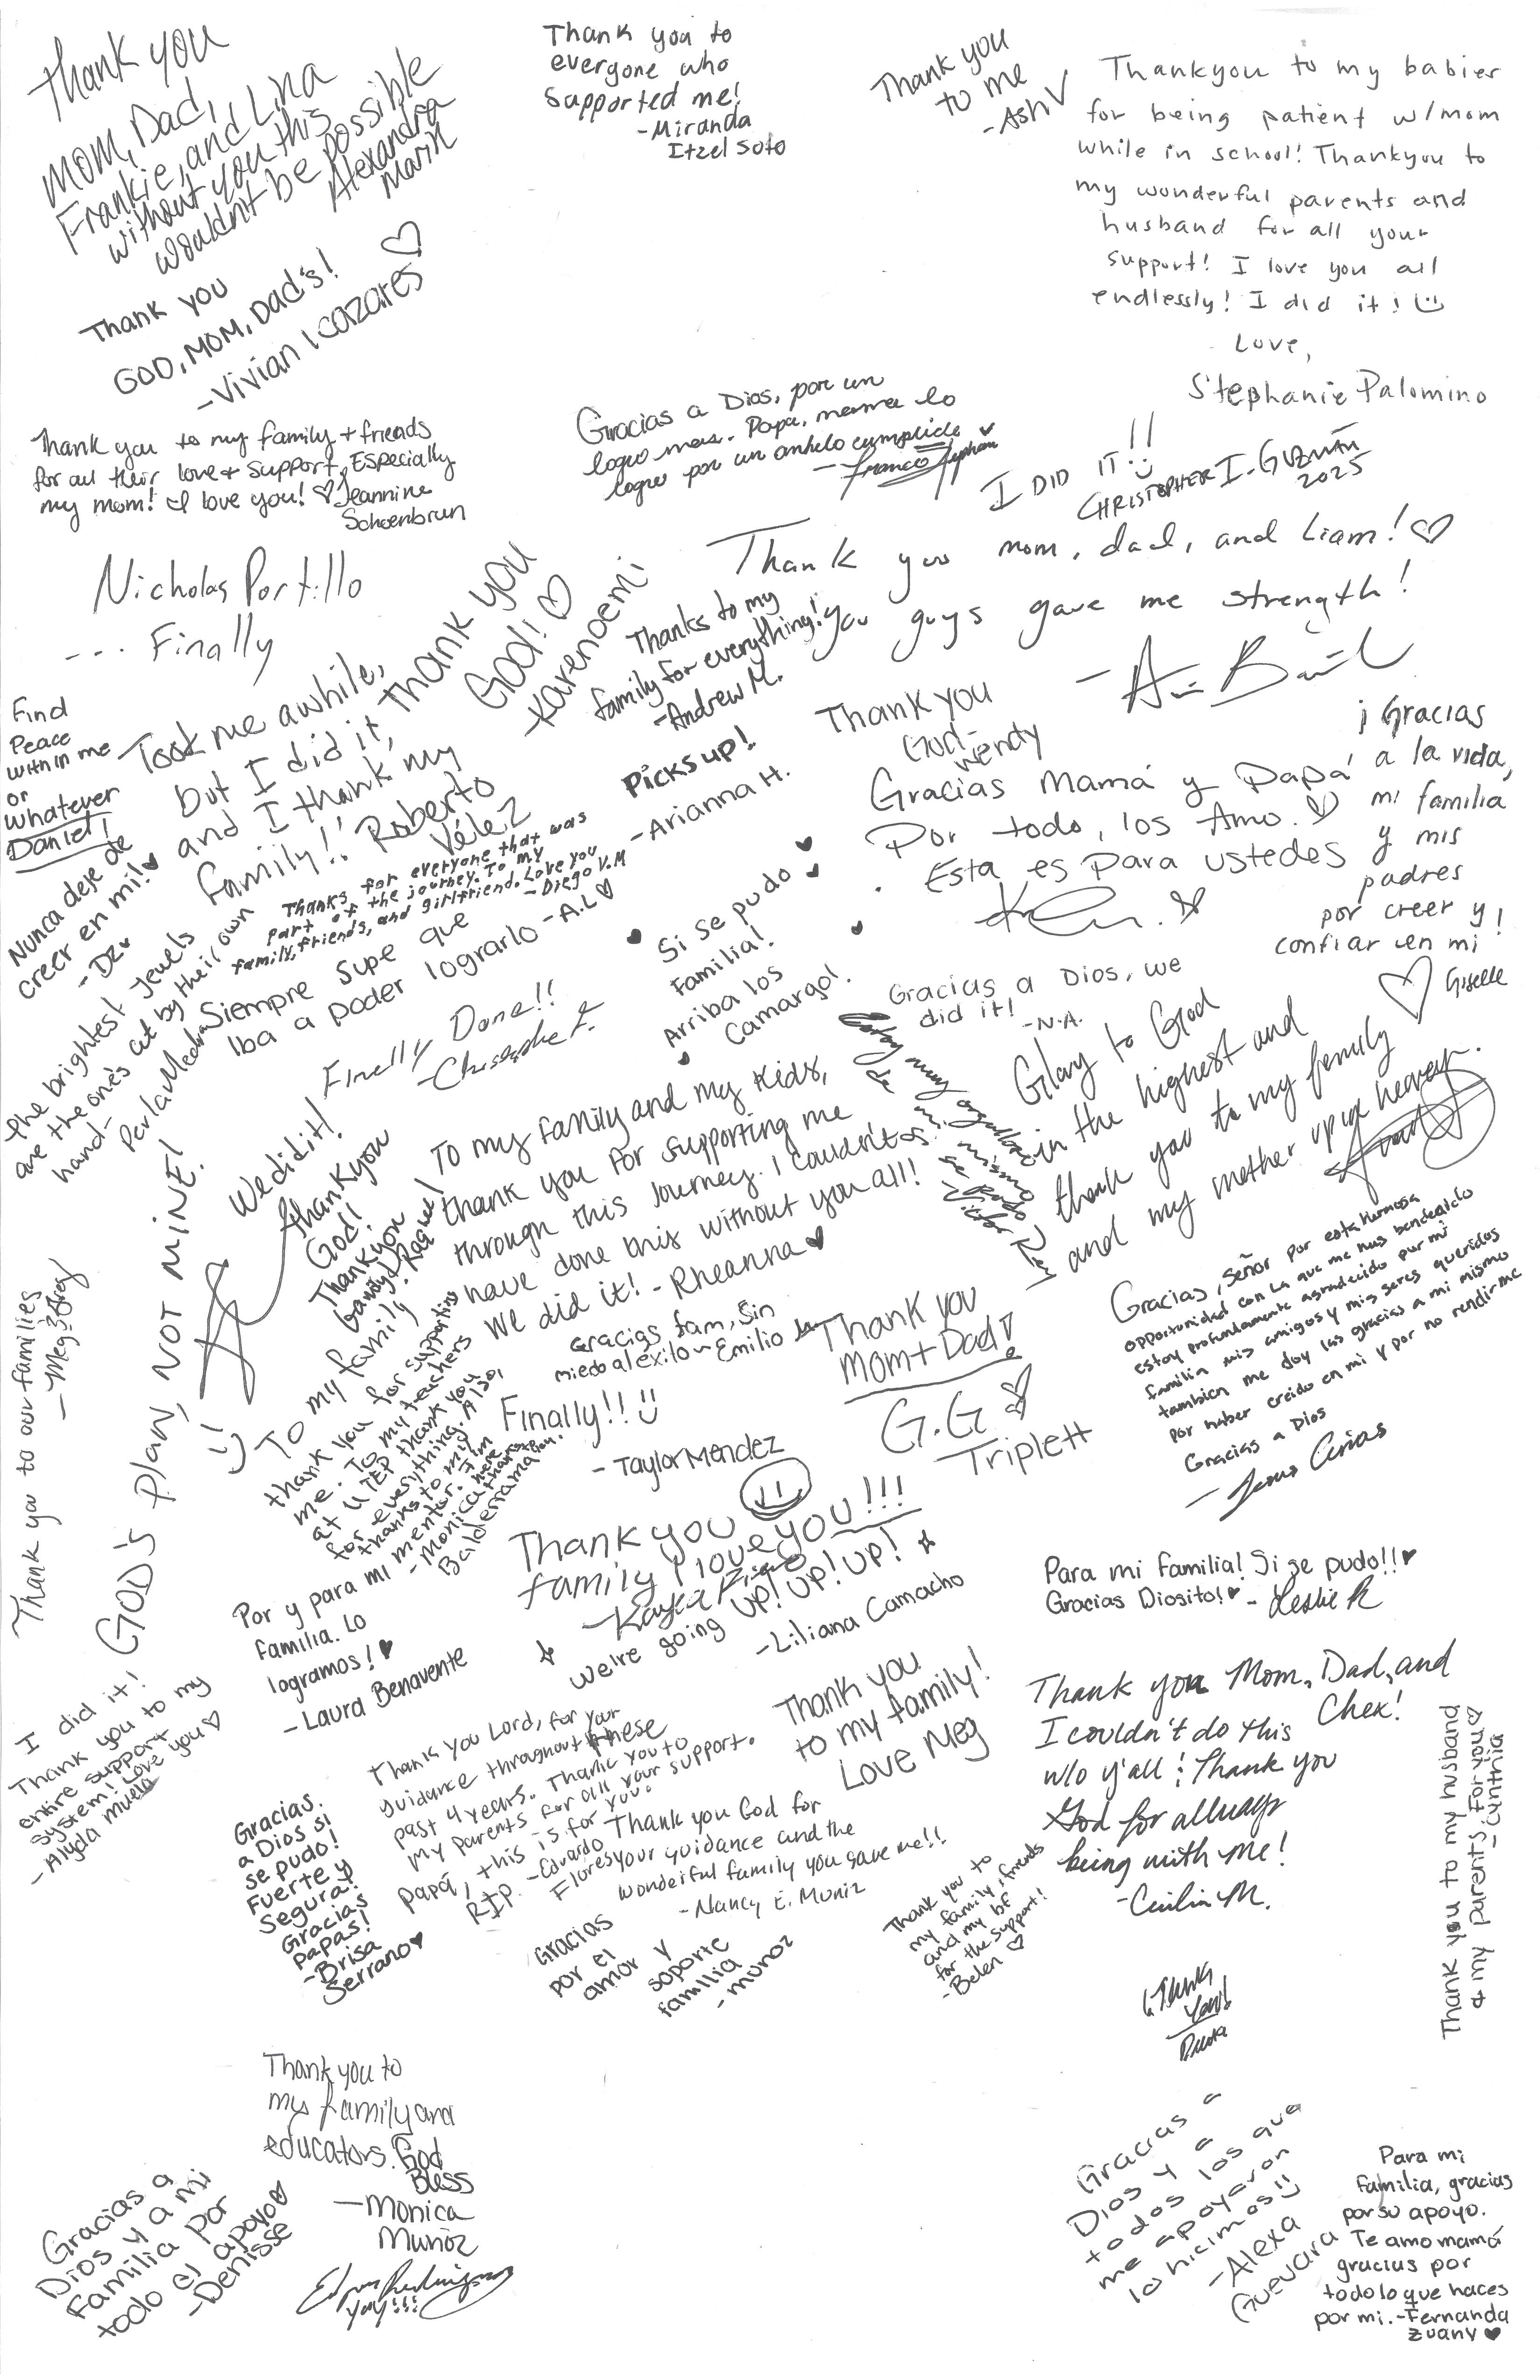 Thank you
Mom, Dad,
Frankie, and Lina
without you this
wouldn't be possible
Alexandra
Marin
Thank you to
everyone who
supported me!
-Miranda
Itzel Soto
Thank you
to me
-Ash
Thankyou to my babies
for being patient w/mom
while in school! Thankyou to
my wonderful parents and
husband for all your
support! I love you all
endlessly! I did it!
Love,
Stephanie Palomino
Thank you
GOD, MOM, Dad's!
-Vivian Icazares
Thank you to my family + friends
for all their love + support, Especially
my mom! I love you! Jeannine
Schoenbrun
Gracias a Dios, por un
logro mas. Papa, mama lo
logre por un anhelo cumplido
I DID IT!!
CHRISTOPHER I. GUZMÁN
2025
Nicholas Portillo
--- Finally
Thank you mom, dad, and Liam!
You guys gave me strength!
Thanks to my
family for everything!
-Andrew M.
Took me awhile,
but I did it,
and I thank my
family!! Roberto
Vélez
Thank you
God!
-Karenoemi
Find
Peace
within me
or
whatever
Daniel!
Thank you
God-
Wendy
Picks up!
-Arianna H.
Gracias Mamá y Papá
Por todo, los Amo.
Esta es para ustedes
¡Gracias
a la vida,
mi familia
y mis
padres
por creer y
confiar en mi!
Giselle
Nunca deje de
creer en mi!
-DZ
Thanks for everyone that was
part of the journey. To my
family, friends, and girlfriend. Love you
-Diego V.M
Siempre supe que
iba a poder lograrlo -A.L
The brightest jewels
are the one's cut by their own
hand-
Perla Medra
Si se pudo
Familia!
Arriba los
Camargo!
Gracias a Dios, we
did it!
-N.A.
Finally Done!!
Estoy muy orgulloso
de mi mismo
si se pudo
-Victor Rey
Glory to God
in the highest and
thank you to my family
and my mother up in heaven.
We did it!
Thank you
God!
Thank you
Gandy & Raquel
To my family and my kids,
thank you for supporting me
through this journey. I couldn't
have done this without you all!
We did it! - Rheanna
GOD'S plan, NOT MINE!
Thank you to our families
Gracias, Señor por esta hermosa
opportunidad con la que me has bendecido
estoy profundamente agradecido por mi
familia mis amigos y mis seres queridos
tambien me doy las gracias a mi mismo
por haber creido en mi y por no rendirme
Gracias a Dios
-Jesus Arias
Gracias fam, Sin
miedo al exito ~ Emilio
Thank you
Mom + Dad!
G.G
Triplett
To my family
thank you for supporting
me. To my teachers
at UTEP thank you
for everything. Also,
thanks to my
mentor. I'm
here
thanks to them
-Monica
Balderrama
Finally!!
-Taylor Mendez
Thank you
family I love you!!!
We're going UP! UP! UP!
-Liliana Camacho
Por y para mi
familia. Lo
logramos!
-Laura Benavente
Para mi Familia! Si se pudo!!
Gracias Diosito! - Leslie R
I did it!
Thank you to my
entire support
system! Love you
-Alyda
Thank you Lord, for your
guidance throughout these
past 4 years. Thank you to
my parents for all your support.
Papá, this is for you.
RIP. -Eduardo
Flores
Thank you
to my family!
Love Meg
Thank you Mom, Dad, and
Chex!
I couldn't do this
w/o y'all! Thank you
God for allways
being with me!
-Cecilia M.
Thank you to my husband
& my parents. For you
-Cynthia
Gracias
a Dios si
se pudo!
Fuerte y
Segura!
Gracias
papas!
-Brisa
Serrano
Thank you God for
your guidance and the
wonderful family you gave me!!
-Nancy E. Muniz
Gracias
por el
amor y
soporte
familia
-munoz
Thank you to
my family, friends
and my bf
for the support!
-Belen
Thank
You!
Thank you to
my family and
educators. God
Bless
-Monica
Muñoz
Yay!!!
Gracias a
Dios y a mi
familia por
todo el apoyo
-Denisse
Gracias a
Dios y a
todos los que
me apoyaron
lo hicimos!!
-Alexa
Guevara
Para mi
familia, gracias
por su apoyo.
Te amo mamá
gracias por
todo lo que haces
por mi. -Fernanda
Zuany